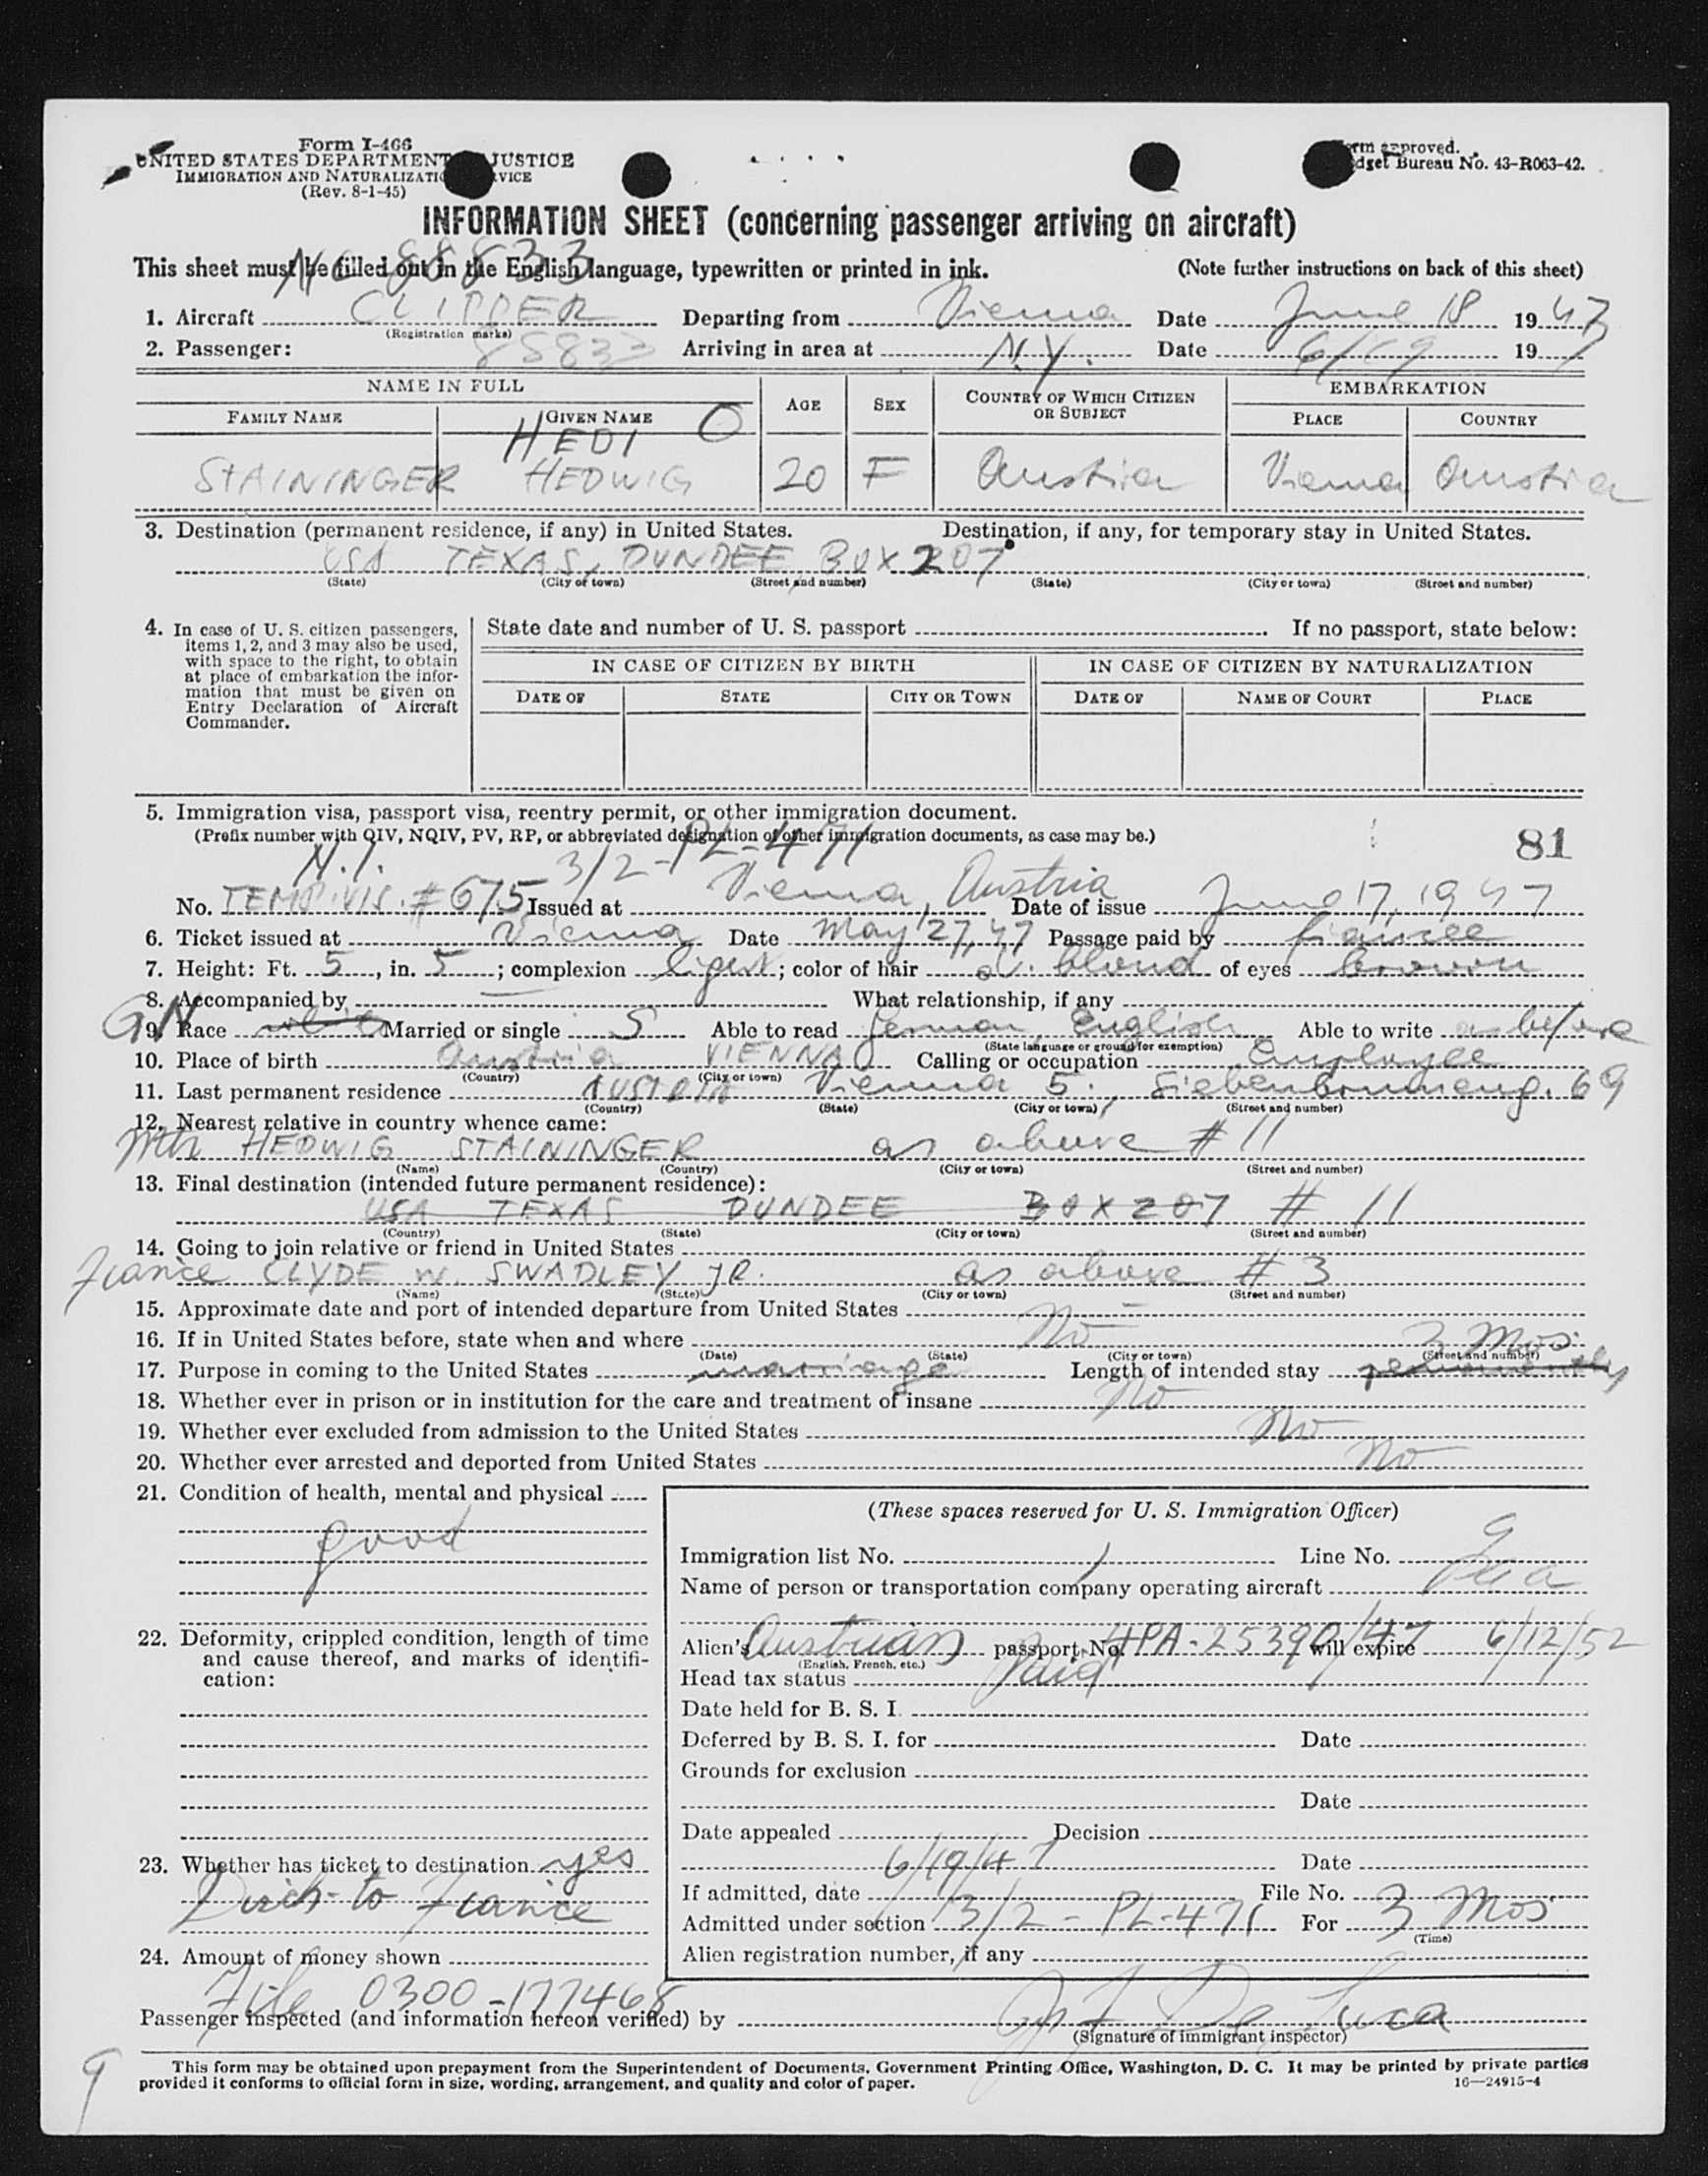 Form I-466
UNITED STATES DEPARTMENT JUSTICE
IMMIGRATION AND NATURALIZATIO VICE
(Rev. 8-1-45)
rm approved.
dget Bureau No. 43-R063-42.
INFORMATION SHEET (concerning passenger arriving on aircraft)
NC 88833
This sheet must be filled out in the English language, typewritten or printed in ink. (Note further instructions on back of this sheet)
1. Aircraft CLIPPER Departing from Vienna Date June 18 1947
(Registration marks)
2. Passenger: 88833 Arriving in area at N.Y. Date 6/19 197
NAME IN FULL AGE SEX COUNTRY OF WHICH CITIZEN OR SUBJECT EMBARKATION
FAMILY NAME GIVEN NAME PLACE COUNTRY
HEDI O
STAININGER HEDWIG 20 F Austria Vienna Austria
3. Destination (permanent residence, if any) in United States. Destination, if any, for temporary stay in United States.
USA TEXAS, DUNDEE BOX 207
(State) (City or town) (Street and number) (State) (City or town) (Street and number)
4. In case of U. S. citizen passengers, items 1, 2, and 3 may also be used, with space to the right, to obtain at place of embarkation the information that must be given on Entry Declaration of Aircraft Commander.
State date and number of U. S. passport If no passport, state below:
IN CASE OF CITIZEN BY BIRTH IN CASE OF CITIZEN BY NATURALIZATION
DATE OF STATE CITY OR TOWN DATE OF NAME OF COURT PLACE
5. Immigration visa, passport visa, reentry permit, or other immigration document.
(Prefix number with QIV, NQIV, PV, RP, or abbreviated designation of other immigration documents, as case may be.) 81
3/2-PL-471
No. TEMP. VIS. #675 Issued at Vienna, Austria Date of issue June 17, 1947
6. Ticket issued at Vienna Date May 27, 47 Passage paid by fiancee
7. Height: Ft. 5, in. 5; complexion light; color of hair d. blond of eyes brown
8. Accompanied by — What relationship, if any
GN
9. Race white Married or single S Able to read German English Able to write as before
(State language or ground for exemption)
10. Place of birth Austria VIENNA Calling or occupation Employee
(Country) (City or town)
11. Last permanent residence AUSTRIA Vienna 5. Siebenbrunneng. 69
(Country) (State) (City or town) (Street and number)
12. Nearest relative in country whence came:
Mth HEDWIG STAININGER as above #11
(Name) (Country) (City or town) (Street and number)
13. Final destination (intended future permanent residence):
USA TEXAS DUNDEE BOX 207 # 11
(Country) (State) (City or town) (Street and number)
14. Going to join relative or friend in United States
Fiance CLYDE W. SWADLEY JR. as above #3
(Name) (State) (City or town) (Street and number)
15. Approximate date and port of intended departure from United States —
16. If in United States before, state when and where No
(Date) (State) (City or town) (Street and number)
3 Mos.
17. Purpose in coming to the United States marriage Length of intended stay permanently
18. Whether ever in prison or in institution for the care and treatment of insane No
19. Whether ever excluded from admission to the United States No
20. Whether ever arrested and deported from United States No
21. Condition of health, mental and physical
good
22. Deformity, crippled condition, length of time and cause thereof, and marks of identification:
23. Whether has ticket to destination yes
to Fiance
24. Amount of money shown
(These spaces reserved for U. S. Immigration Officer)
Immigration list No. 1 Line No. 9
Name of person or transportation company operating aircraft
Alien's Austrian passport No. HPA-25390/47 will expire 6/12/52
(English, French, etc.)
Head tax status Paid
Date held for B. S. I.
Deferred by B. S. I. for Date
Grounds for exclusion
Date
Date appealed Decision
Date
If admitted, date 6/19/47 File No.
Admitted under section 3/2-PL-471 For 3 Mos
(Time)
Alien registration number, if any
File 0300-177468
Passenger inspected (and information hereon verified) by De Luca
(Signature of immigrant inspector)
This form may be obtained upon prepayment from the Superintendent of Documents, Government Printing Office, Washington, D. C. It may be printed by private parties
provided it conforms to official form in size, wording, arrangement, and quality and color of paper. 16—24915-4
9